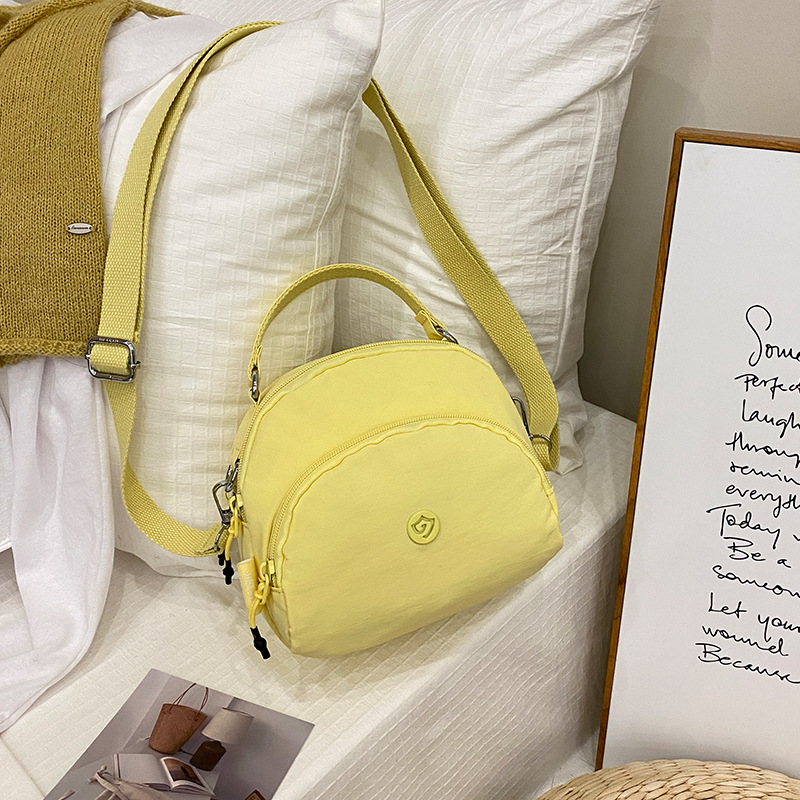 Some
Perfect
laugh
through
remin
everyth
Today
Be a
someon
Let your
wound
Because